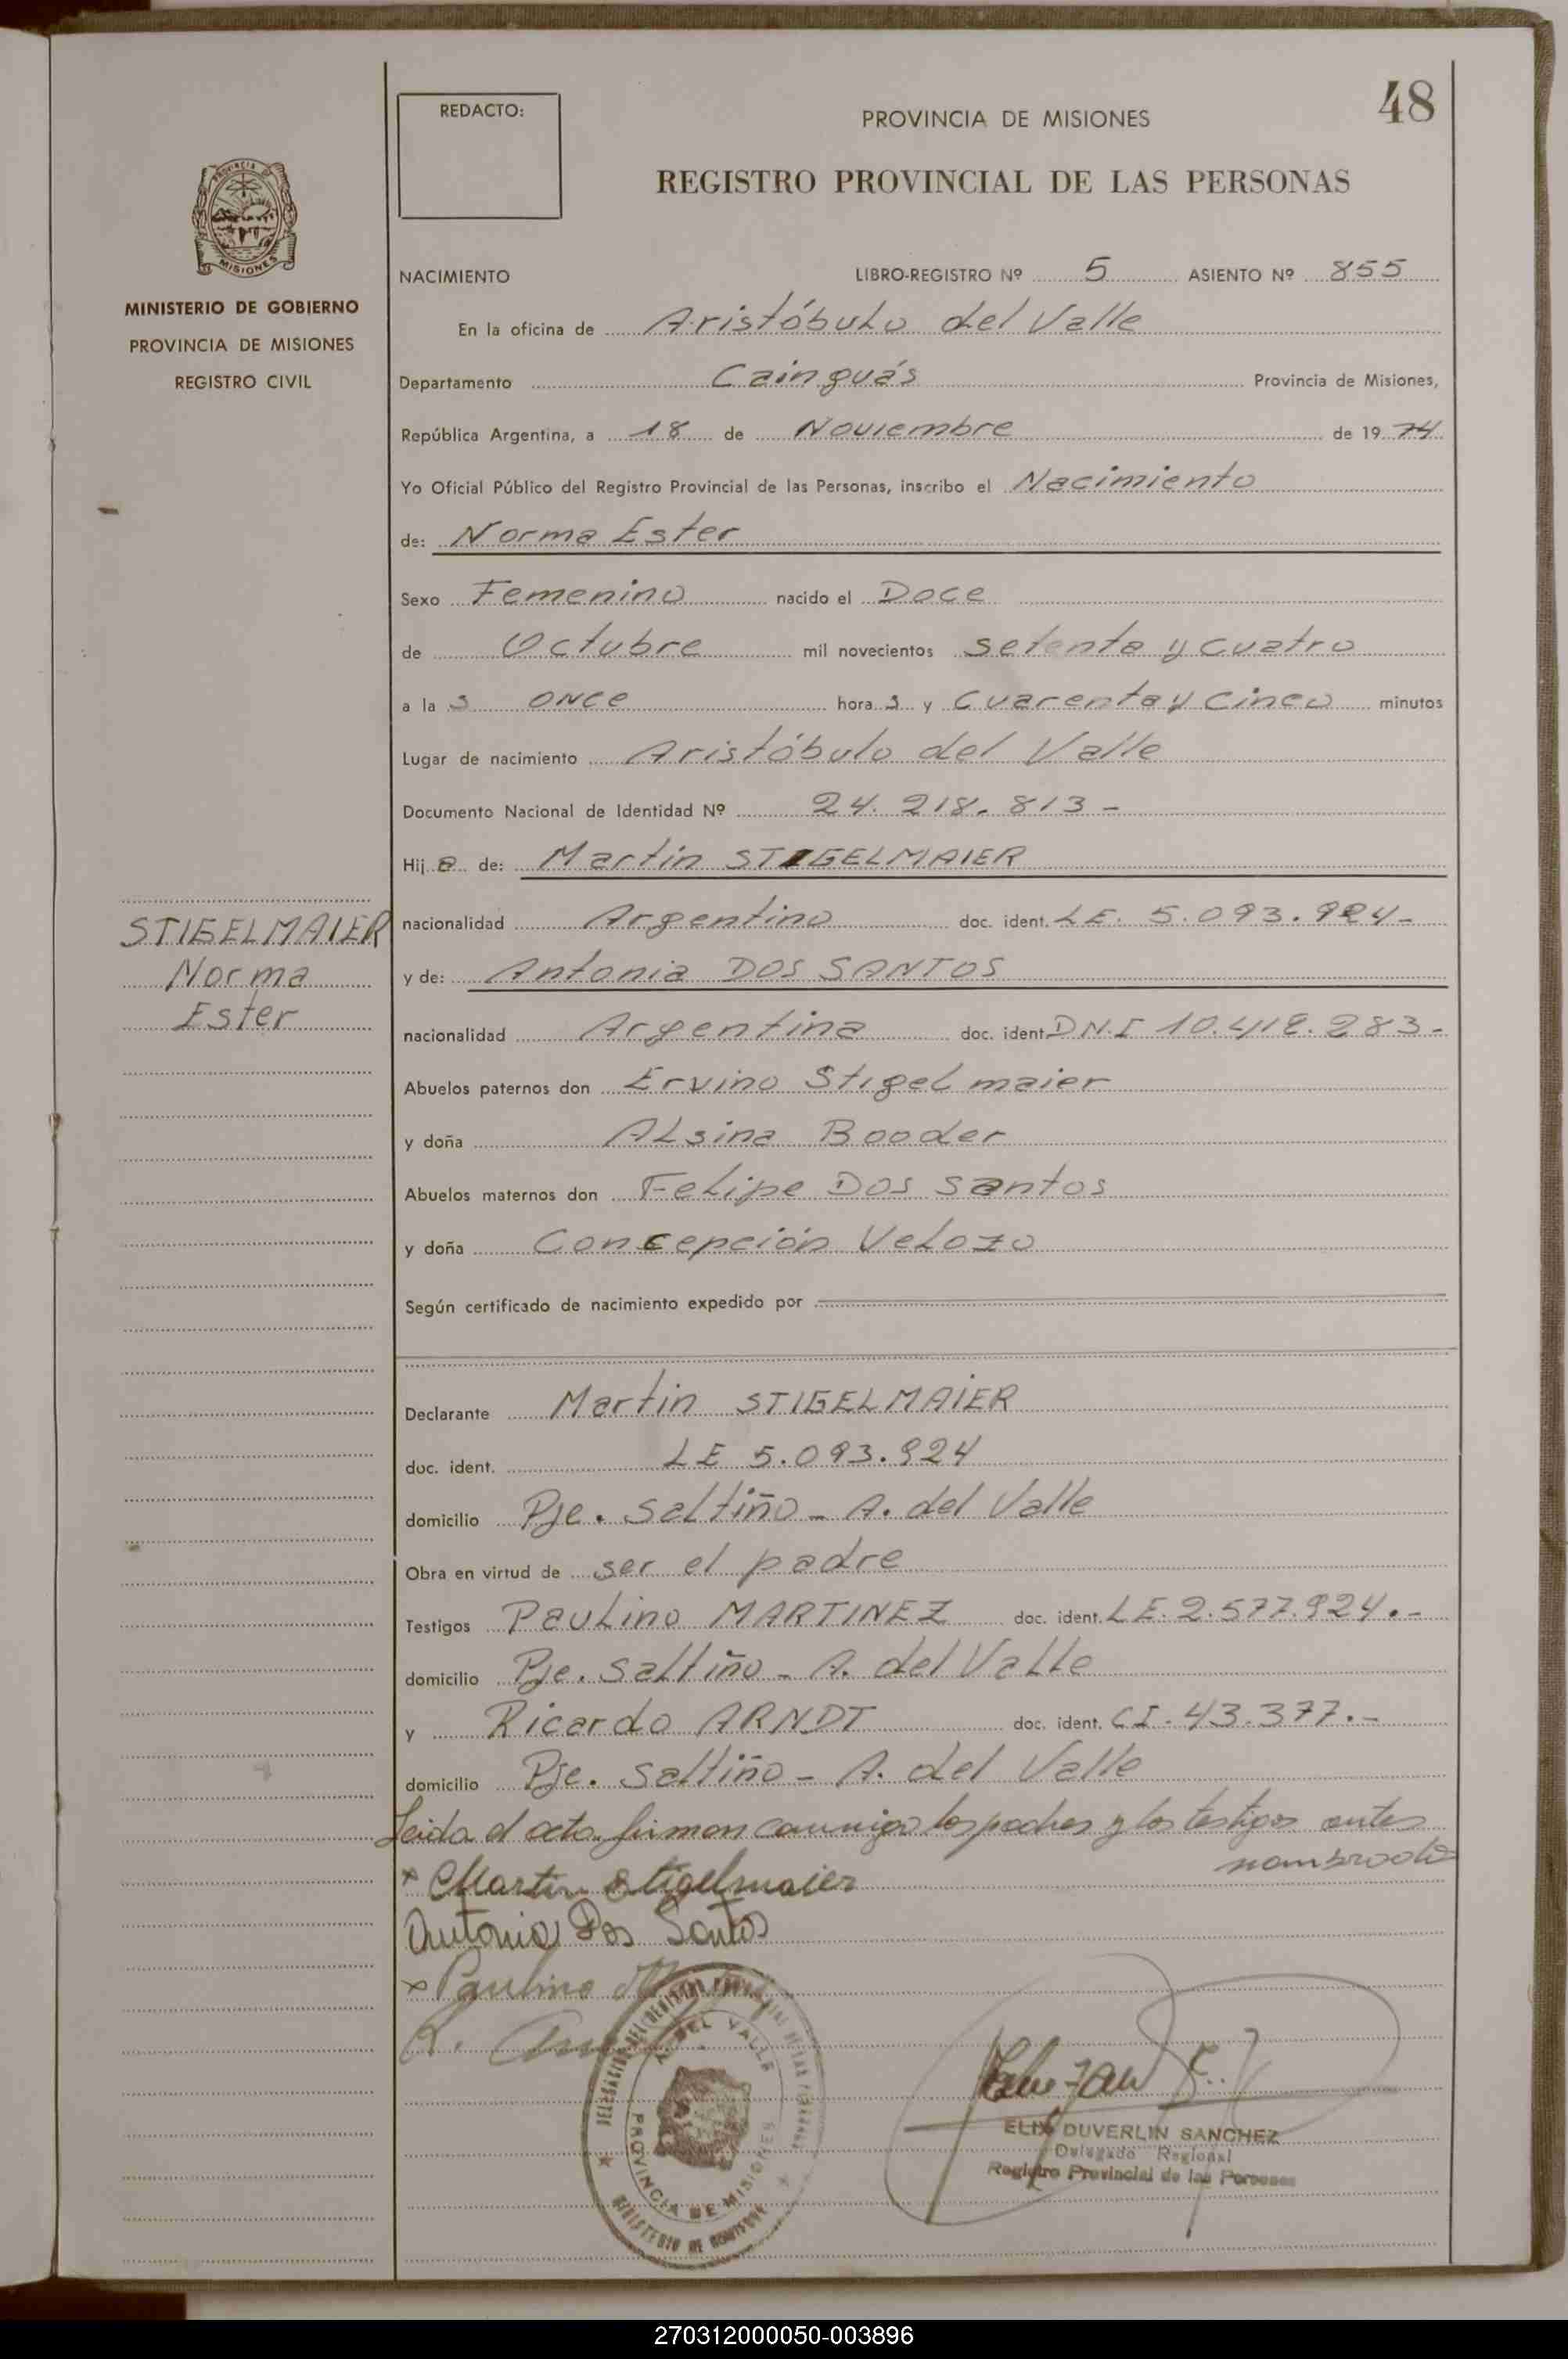 48
REDACTO:
PROVINCIA DE MISIONES
REGISTRO PROVINCIAL DE LAS PERSONAS
PROVINCIA DE
MISIONES
MINISTERIO DE GOBIERNO
PROVINCIA DE MISIONES
REGISTRO CIVIL
NACIMIENTO LIBRO-REGISTRO Nº 5 ASIENTO Nº 855
En la oficina de Aristóbulo del Valle
Departamento Cainguás Provincia de Misiones,
República Argentina, a 18 de Noviembre de 19 74
Yo Oficial Público del Registro Provincial de las Personas, inscribo el Nacimiento
de: Norma Ester
Sexo Femenino nacido el Doce
de Octubre mil novecientos setenta y cuatro
a la s once hora s y Cuarenta y Cinco minutos
Lugar de nacimiento Aristóbulo del Valle
Documento Nacional de Identidad Nº 24.218.813-
Hij a de: Martin STIGELMAIER
STIGELMAIER
Norma
Ester
nacionalidad Argentino doc. ident. LE. 5.093.924-
y de: Antonia DOS SANTOS
nacionalidad Argentina doc. ident. DN.I 10.418.283-
Abuelos paternos don Ervino Stigelmaier
y doña ALsina Booder
Abuelos maternos don Felipe Dos Santos
y doña Concepción Velozo
Según certificado de nacimiento expedido por
Declarante Martin STIGELMAIER
doc. ident. LE 5.093.924
domicilio Pje. Saltiño - A. del Valle
Obra en virtud de ser el padre
Testigos Paulino MARTINEZ doc. ident. LE. 2.577.924.-
domicilio Pje. Saltiño - A. del Valle
y Ricardo ARNDT doc. ident. CI. 43.377.-
domicilio Pje. Saltiño - A. del Valle
Leida el acta firman conmigo los padres y los testigos antes
nombrados
x Martin Stigelmaier
Antonia Dos Santos
x Paulino
R.
DEL VALLE
PROVINCIA DE MISIONES
MINISTERIO DE GOBIERNO
ELIX DUVERLIN SANCHEZ
Delegado Regional
Registro Provincial de las Personas
270312000050-003896